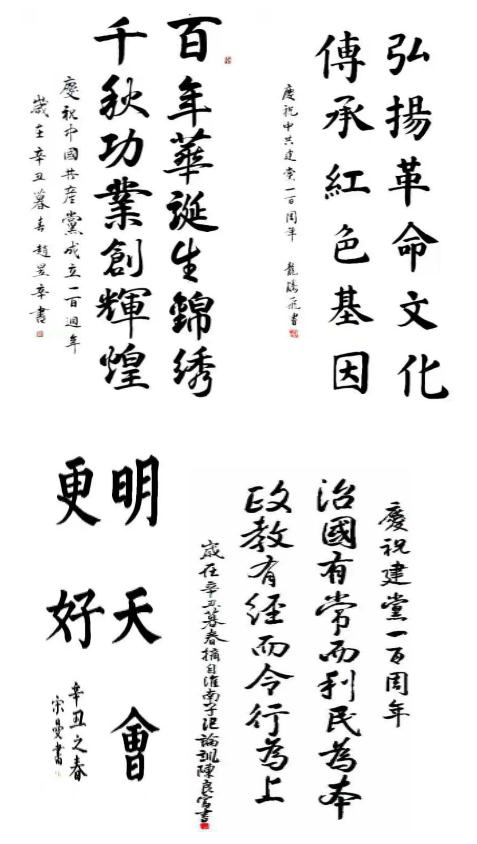 百年華誕生錦绣
千秋功業創輝煌
慶祝中國共産黨成立一百週年
歲在辛丑暮春趙昱書
弘揚革命文化
傳承紅色基因
慶祝中共建黨一百周年 龍騰飛書
明天會
更好
辛丑之春
宋曼書
慶祝建黨一百周年
治國有常而利民為本
政教有經而令行為上
歲在辛丑暮春摘自淮南子氾論訓陳良書